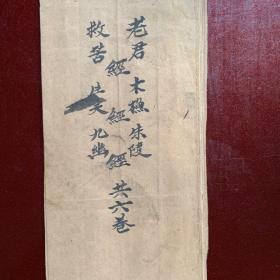 老君 木 朱陵
救苦 生天 九幽
經 經 經 共六卷